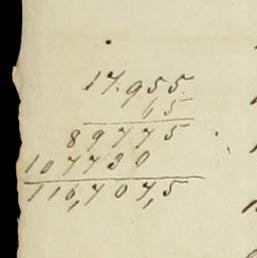 17.955
6,5
89775
107730
116,707,5